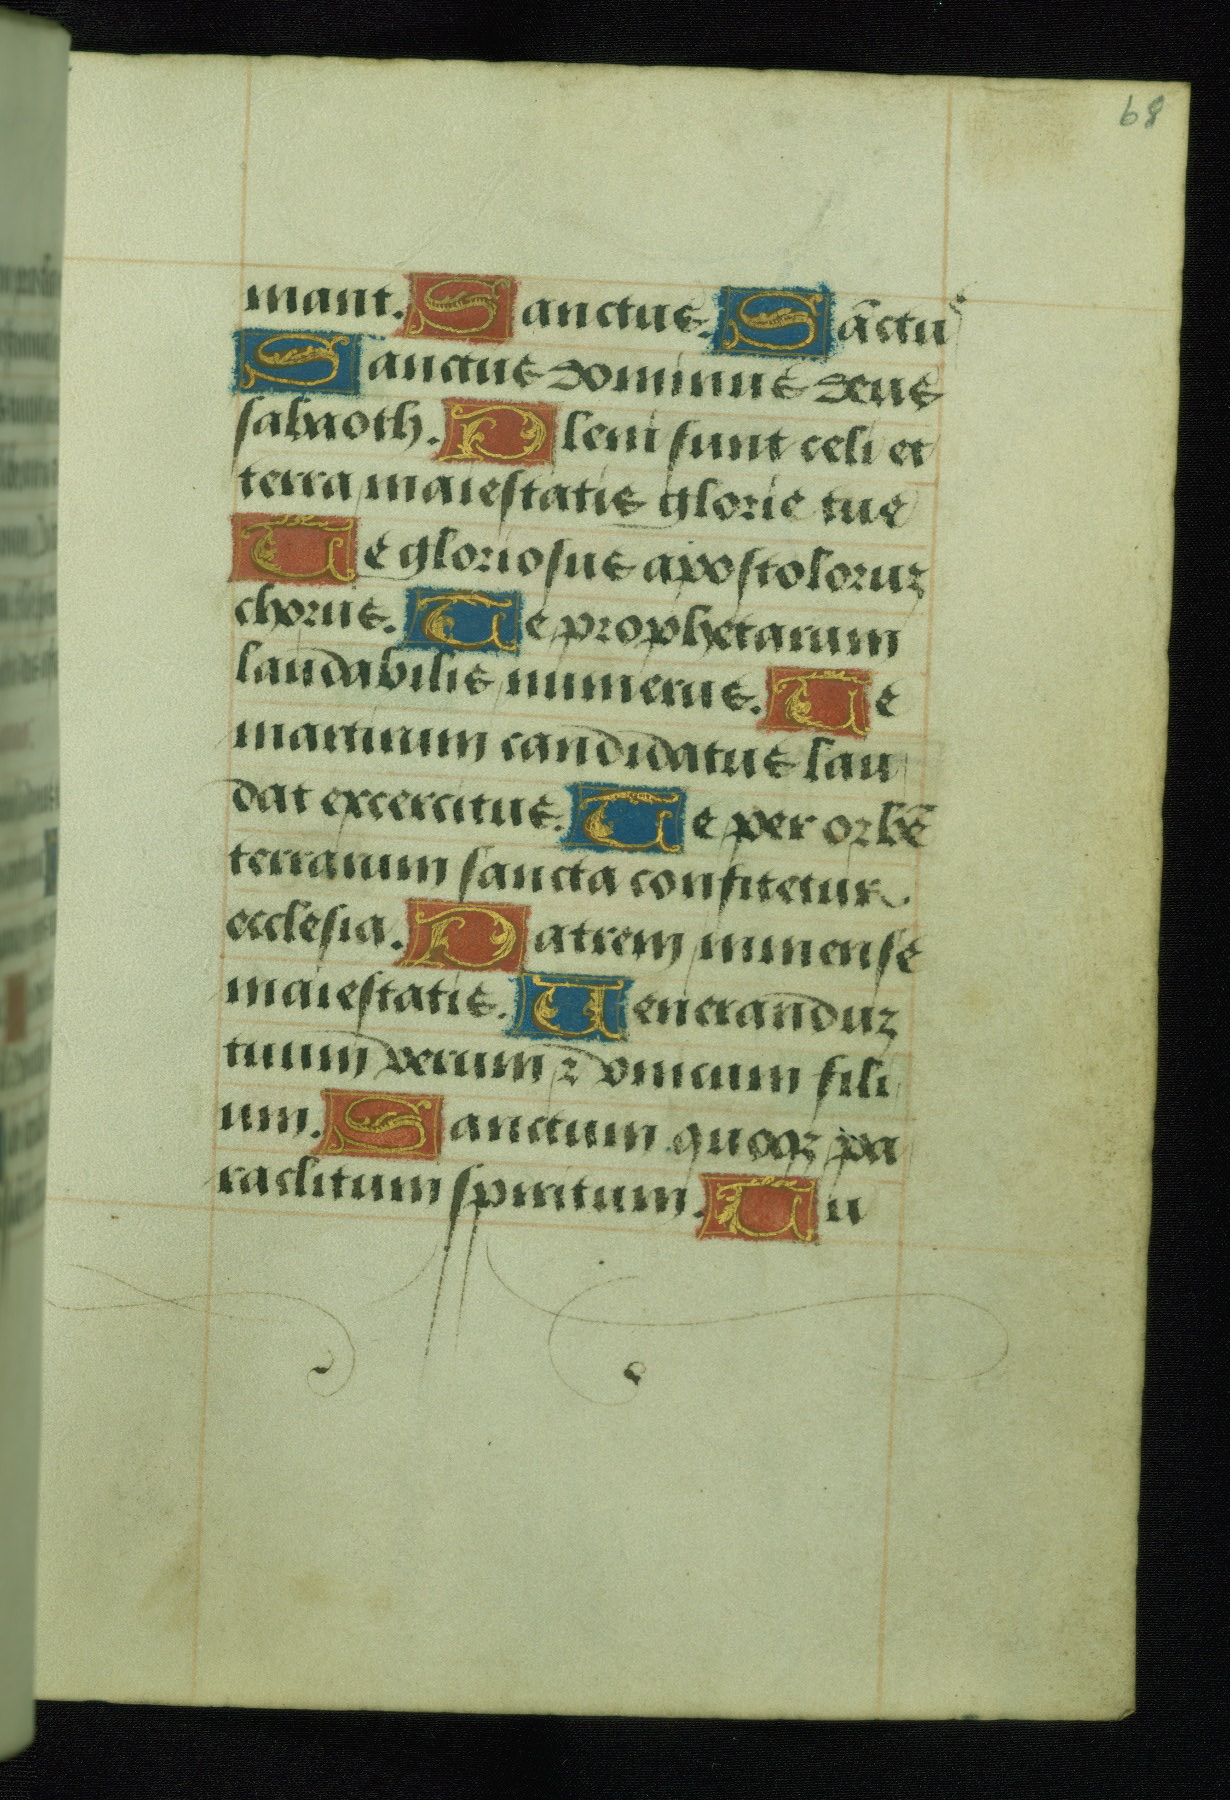 68
mant. Sanctus. Sāctus
Sanctus dominus deus
sabaoth. Pleni sunt celi et
terra maiestatis glorie tue
Te gloriosus apostoloruꝫ
chorus. Te prophetarum
laudabilis numerus. Te
martirum candidatus lau
dat excercitus. Te per orbē
terrarum sancta confitetur
ecclesia. Patrem immense
maiestatis. Ueneranduꝫ
tuum verum ⁊ vnicum fili
um. Sanctum quoqꝫ pa
raclitum spiritum. Tu